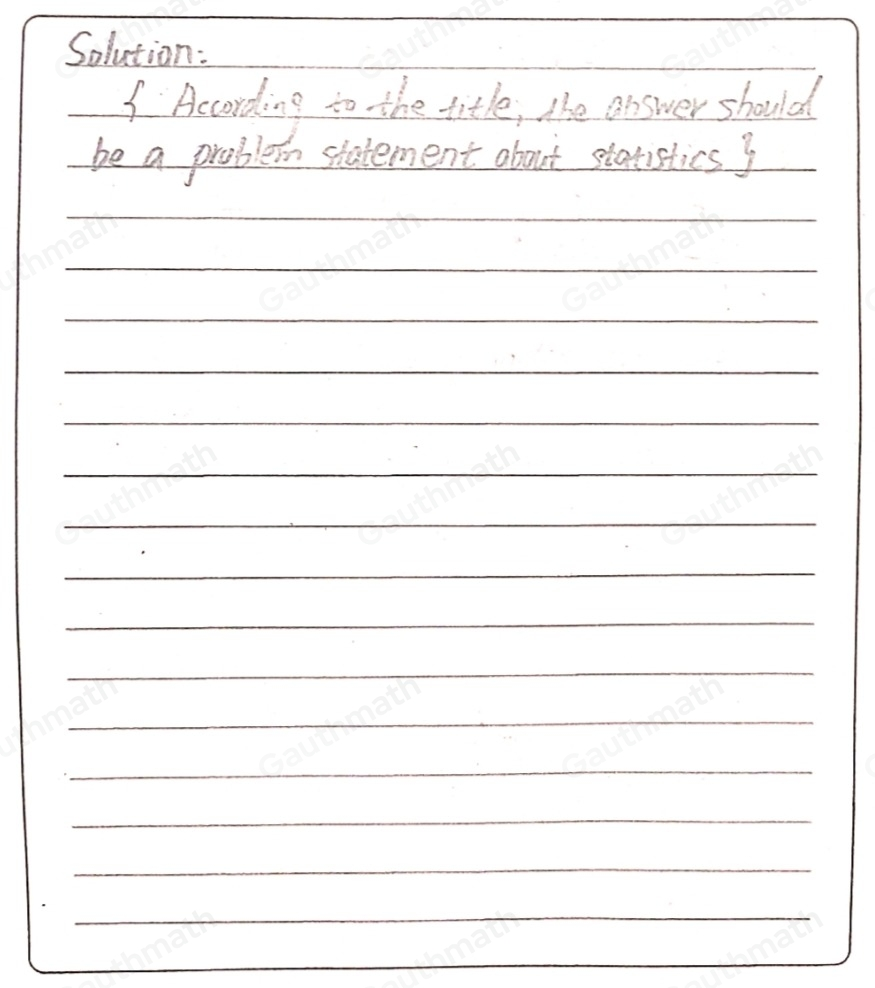 Solution:
{ According to the title, the answer should
be a problem statement about statistics }